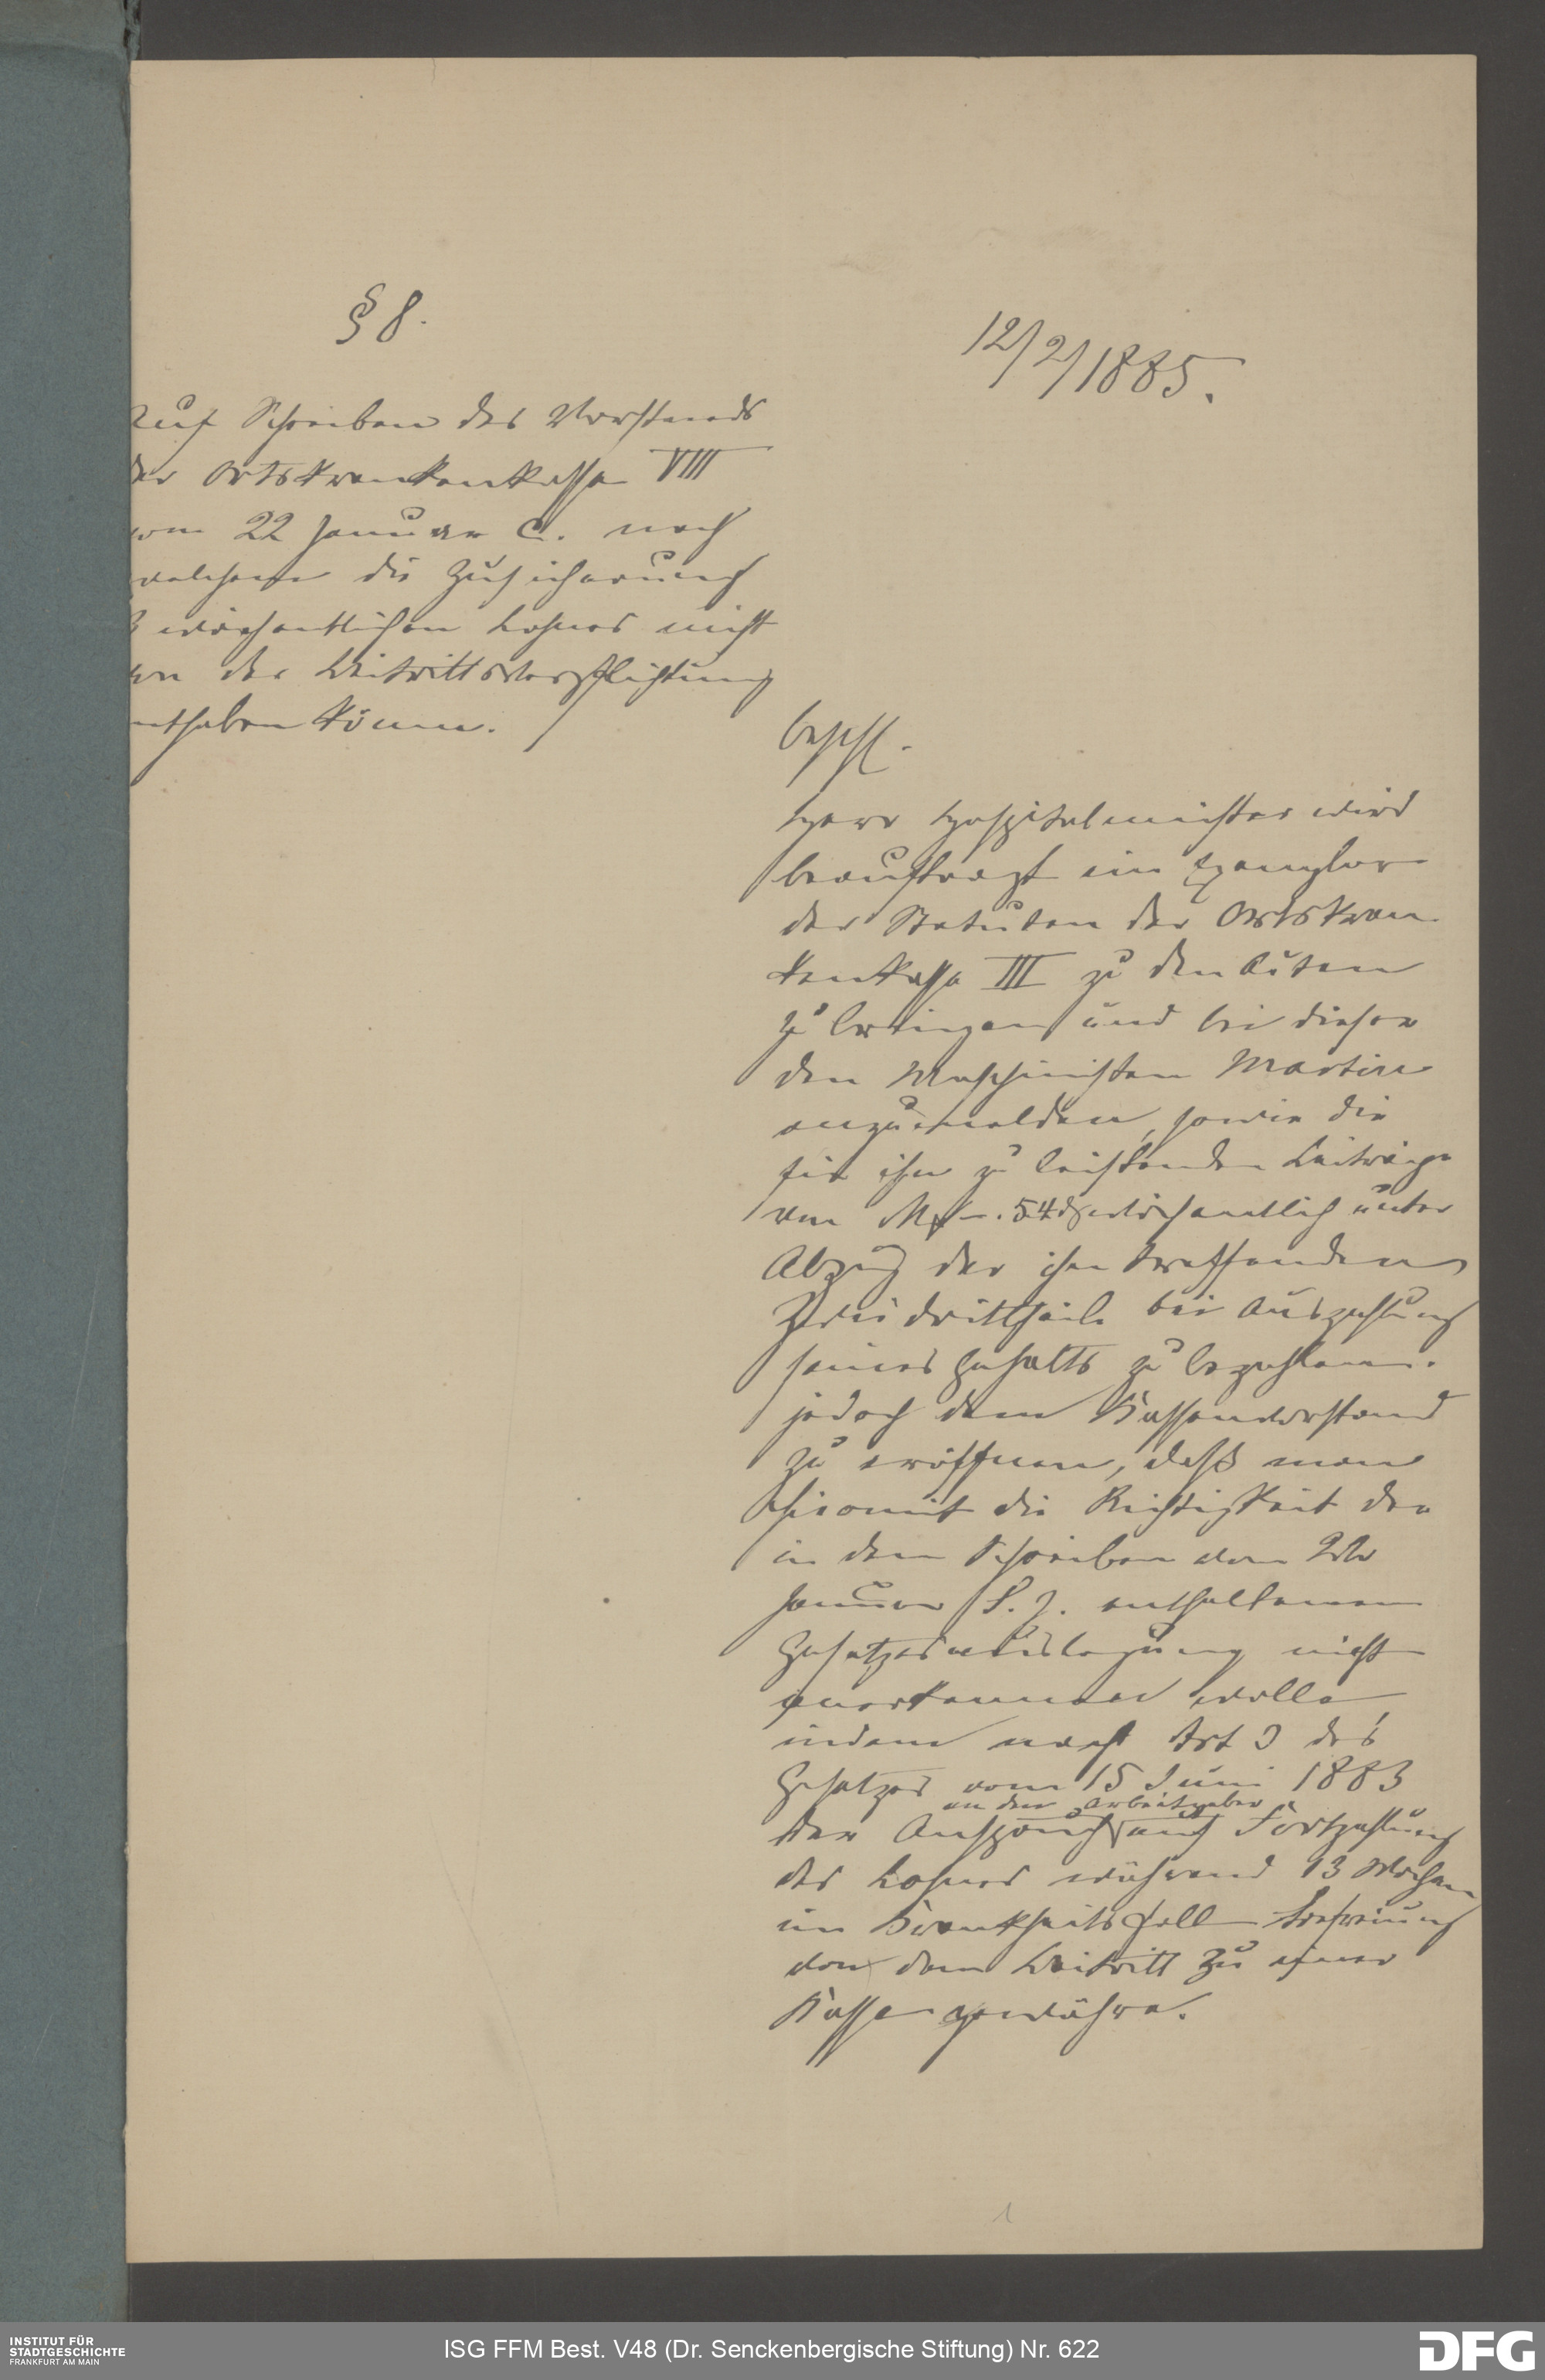 § 8.
12/2/1885.
Auf Schreiben des Vorstands
der Ortskrankenkasse VIII
vom 22 Januar c. nach
welchem die Zusicherung
wöchentlichen Lohnes nicht
von der Beitrittsverpflichtung
entheben könne.
beschl.
Herr Hospitalmeister wird
beauftragt ein Exemplar
der Statuten der Ortskran
kenkasse III zu den Akten
zu bringen und bei dieser
den Maschinisten Martin
anzumelden, sowie die
für ihn zu leistenden Beiträge
von M –.54 wöchentlich unter
Abzug der ihn treffenden
Zwei drittheile bei Auszahlung
seines Gehalts zu bezahlen.
jedoch dem Kassenvorstand
zu eröffnen, daß man
hiermit die Richtigkeit der
in dem Schreiben vom 22
Januar l. J. enthaltenen
Gesetzesauslegung nicht
anerkennen wolle,
indem nach Art 3 des
Gesetzes vom 15 Juni 1883
an den Arbeitgeber
der Anspruch auf Fortzahlung
des Lohnes während 13 Wochen
im Krankheitsfall Befreiung
von dem Beitritt zu einer
Kasse gewähre.
1
INSTITUT FÜR
STADTGESCHICHTE
FRANKFURT AM MAIN
ISG FFM Best. V48 (Dr. Senckenbergische Stiftung) Nr. 622
DFG